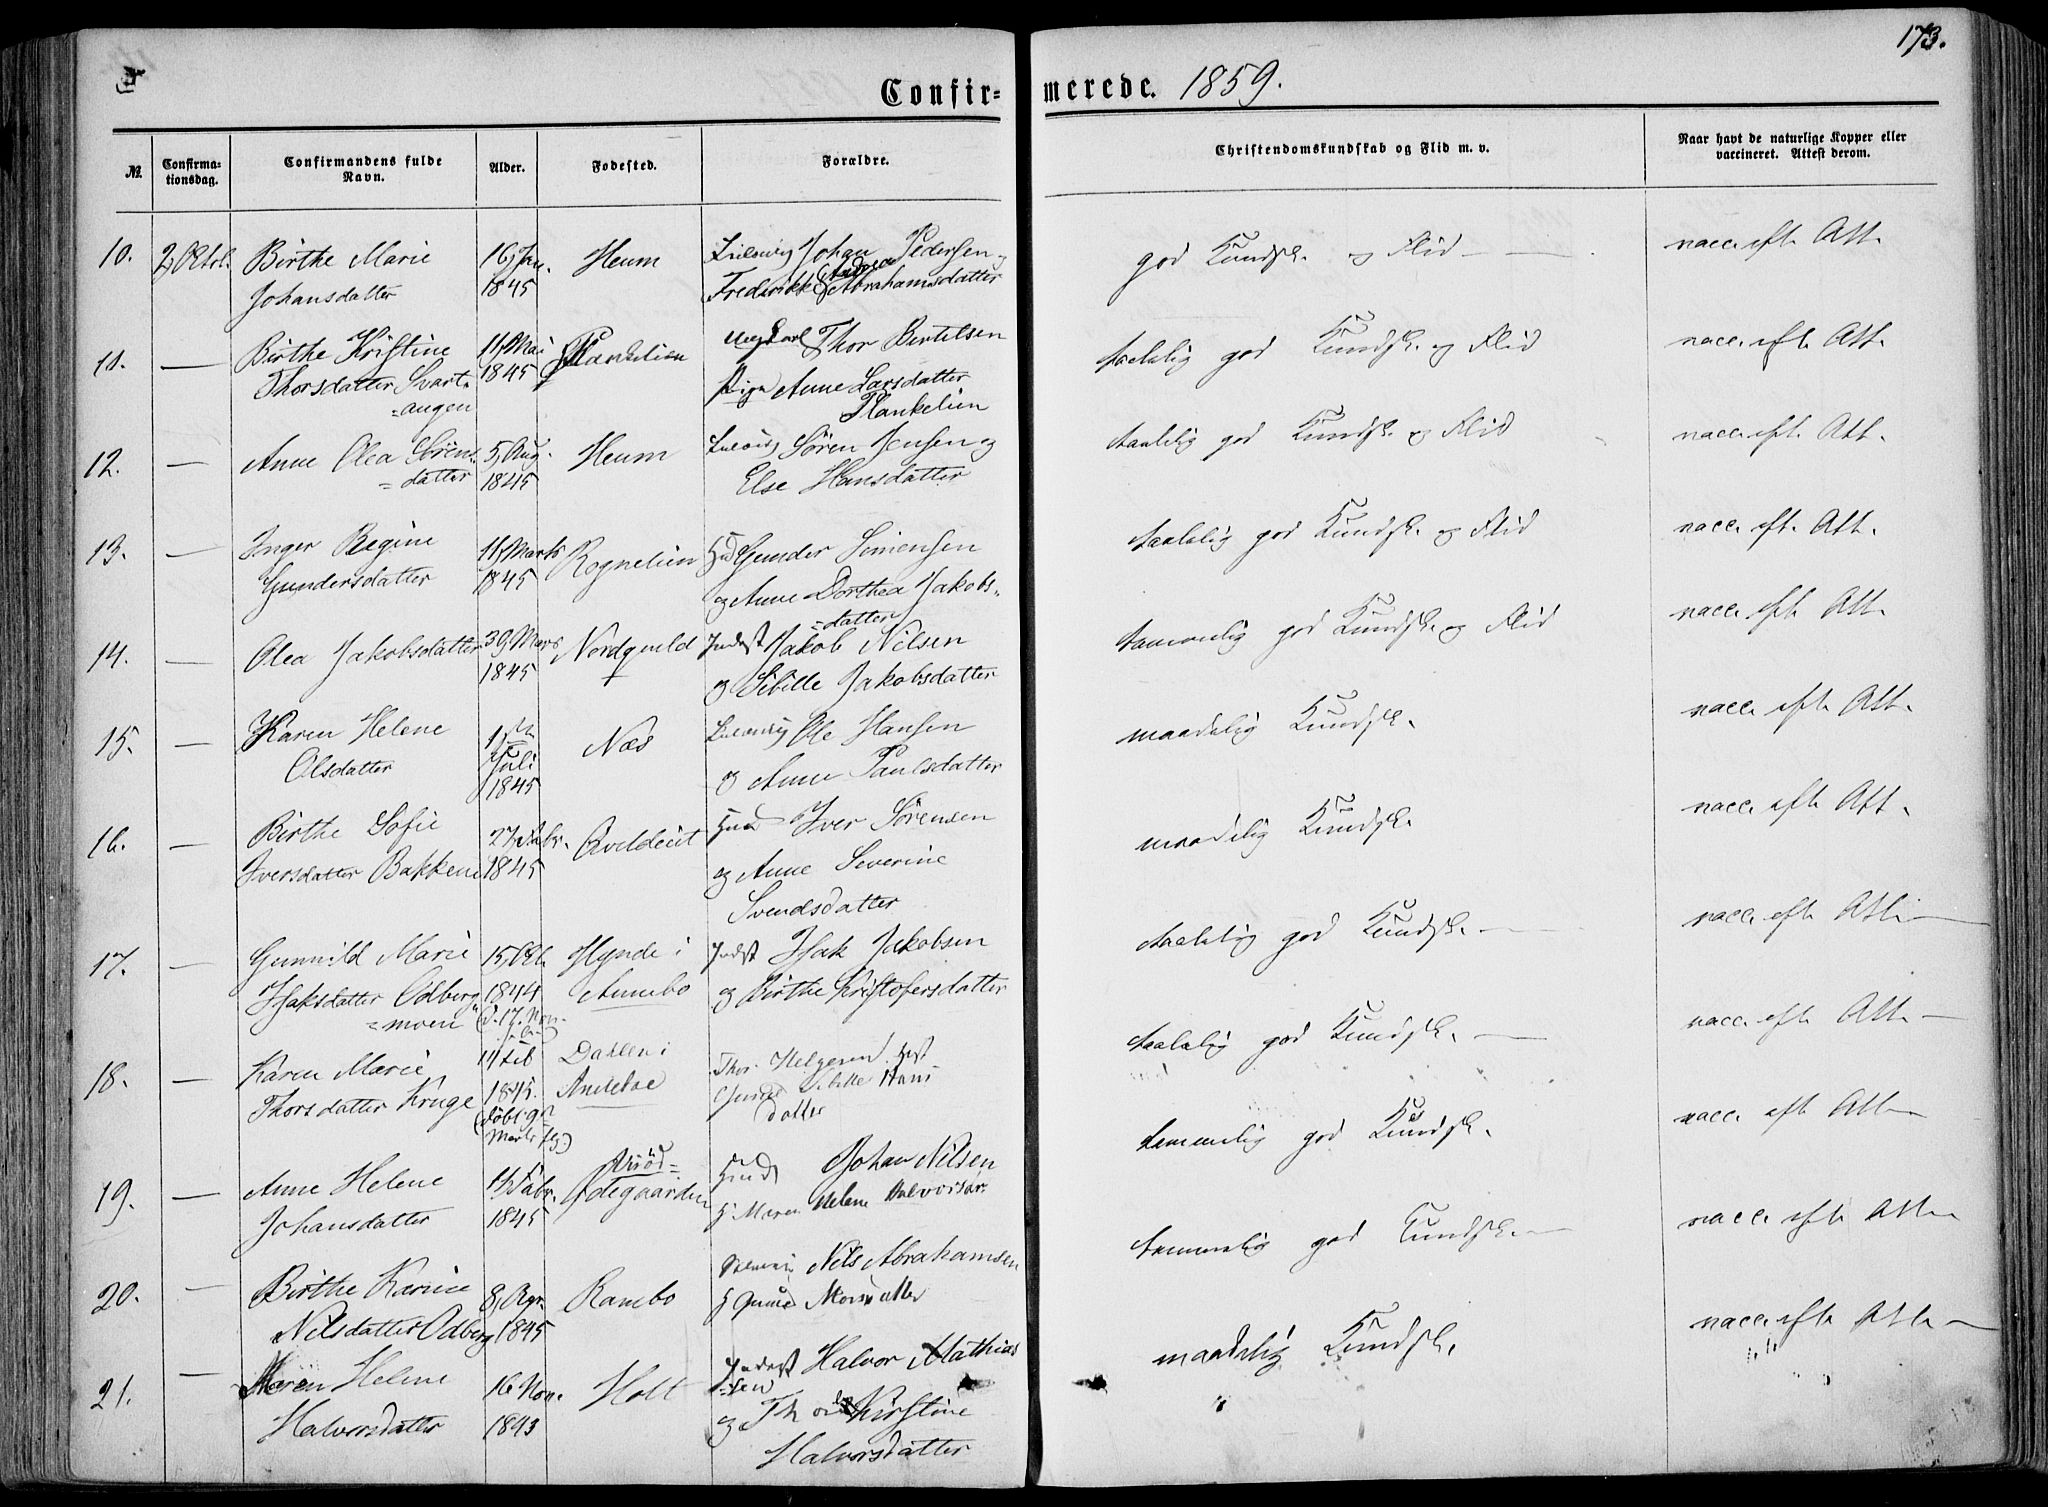 173.
Confirmerede. 1859.
№. Confirmationsdag. Confirmandens fulde Navn. Alder. Fødested. Forældre. Christendomskundskab og Flid m. v. Naar havt de naturlige Kopper eller vaccineret. Attest derom.
10. 2, Octob. Birthe Marie 16, Jan. Heum Johan Pedersen god Kundsk. og Flid vacc. eft. Att.
Johansdatter 1845 Fredrikke Andrea Abrahamsdatter
11. — Birthe Kristine 11, Mai Plankelien Ungkarl Thor Bertelsen taalelig god Kundsk. og Flid vacc. eft. Att.
Thorsdatter Svart= 1845 Pige Anne Larsdatter
=angen Plankelien
12. — Anne Olea Sørens= 5, Aug. Heum Søren Jensen og taalelig god Kundsk. og Flid vacc. eft. Att.
=datter 1845 Else Hansdatter
13. — Inger Regine 11, Marts Rognelien Gunder Simensen taalelig god Kundsk. og Flid vacc. eft. Att.
Gundersdatter 1845 og Anne Dorthea Jakobs=
=datter
14. — Olea Jakobsdatter Marts Nordqveld Inderst Jakob Nilsen temmelig god Kundsk. og Flid vacc. eft. Att.
1845 og Sibille Jakobsdatter
15. — Karen Helene 1ste Næs Ole Hansen maadelig Kundsk. vacc. eft. Att.
Olsdatter Juli og Anne Paulsdatter
1845
16. — Birthe Sofie 27, Febr. Iver Sørensen maadelig Kundsk. vacc. eft. Att.
Iversdatter Bakkene 1845 og Anne Severine
Svendsdatter
17. — Gunnild Marie 15, Okt. Hynde i Inderst Isak Jakobsen taalelig god Kundsk. — vacc. eft. Att. —
Isaksdatter Odberg= 1844 Annebo og Birthe Kristofersdatter
=moen (d. 17. Nov.
18. — Karen Marie 11 Feb Dalen i Thor Helgesen taalelig god Kundsk. — vacc. eft. Att. —
Thorsdatter Kruge 1845. Andeboe Sibille Hans
(døbt 9 datter
Marts
19. — Anne Helene Febr. Ødegaarden Johan Nilsen temmelig god Kundsk. vacc. eft. Att. —
Johansdatter 1845 Maren Helene
20. — Birthe Karine 8, Apr. Rambo Nils Abrahamsen temmelig god Kundsk. — vacc. eft. Att. —
Nilsdatter Odberg 1845
21. — Maren Helene 16 Nov. Holt Inderst Halvor Mathias maadelig Kundsk. vacc. eft. Att. —
Halvorsdatter 1843 =sen
og Kirstine
Halvorsdatter